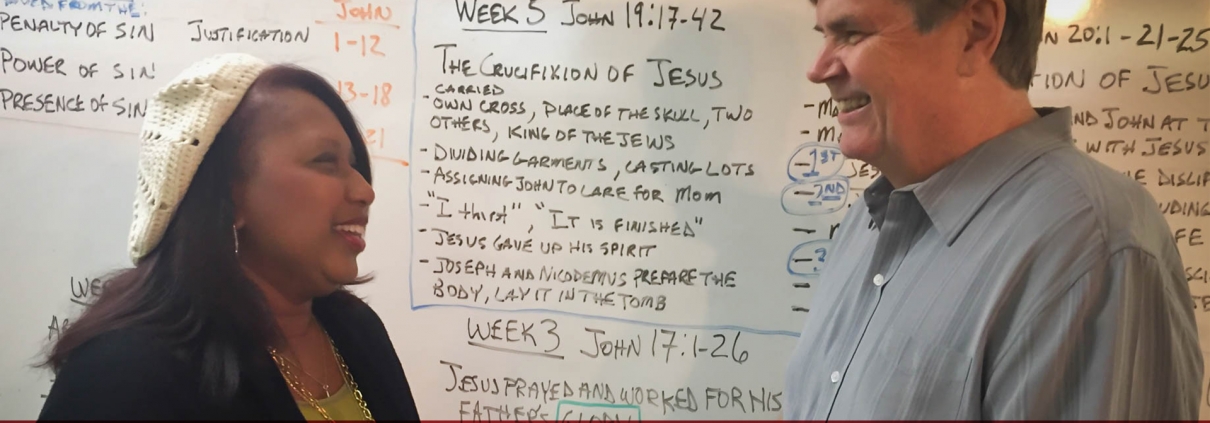 PENALTY OF SIN JUSTIFICATION
POWER OF SIN
PRESENCE OF SIN
JOHN
1-12
13-18
21
WEEK 5 JOHN 19:17-42
THE CRUCIFIXION OF JESUS
CARRIED
- OWN CROSS, PLACE OF THE SKULL, TWO
OTHERS, KING OF THE JEWS
- DIVIDING GARMENTS, CASTING LOTS
- ASSIGNING JOHN TO CARE FOR MOM
- "I thirst", "IT IS FINISHED"
- JESUS GAVE UP HIS SPIRIT
- JOSEPH AND NICODEMUS PREPARE THE
BODY, LAY IT IN THE TOMB
WEEK 3 JOHN 17:1-26
JESUS PRAYED AND WORKED FOR HIS
FATHER'S GLORY
20:1-21-25
OF JESU
AND JOHN AT T
- 1ST WITH JESUS
- 2ND